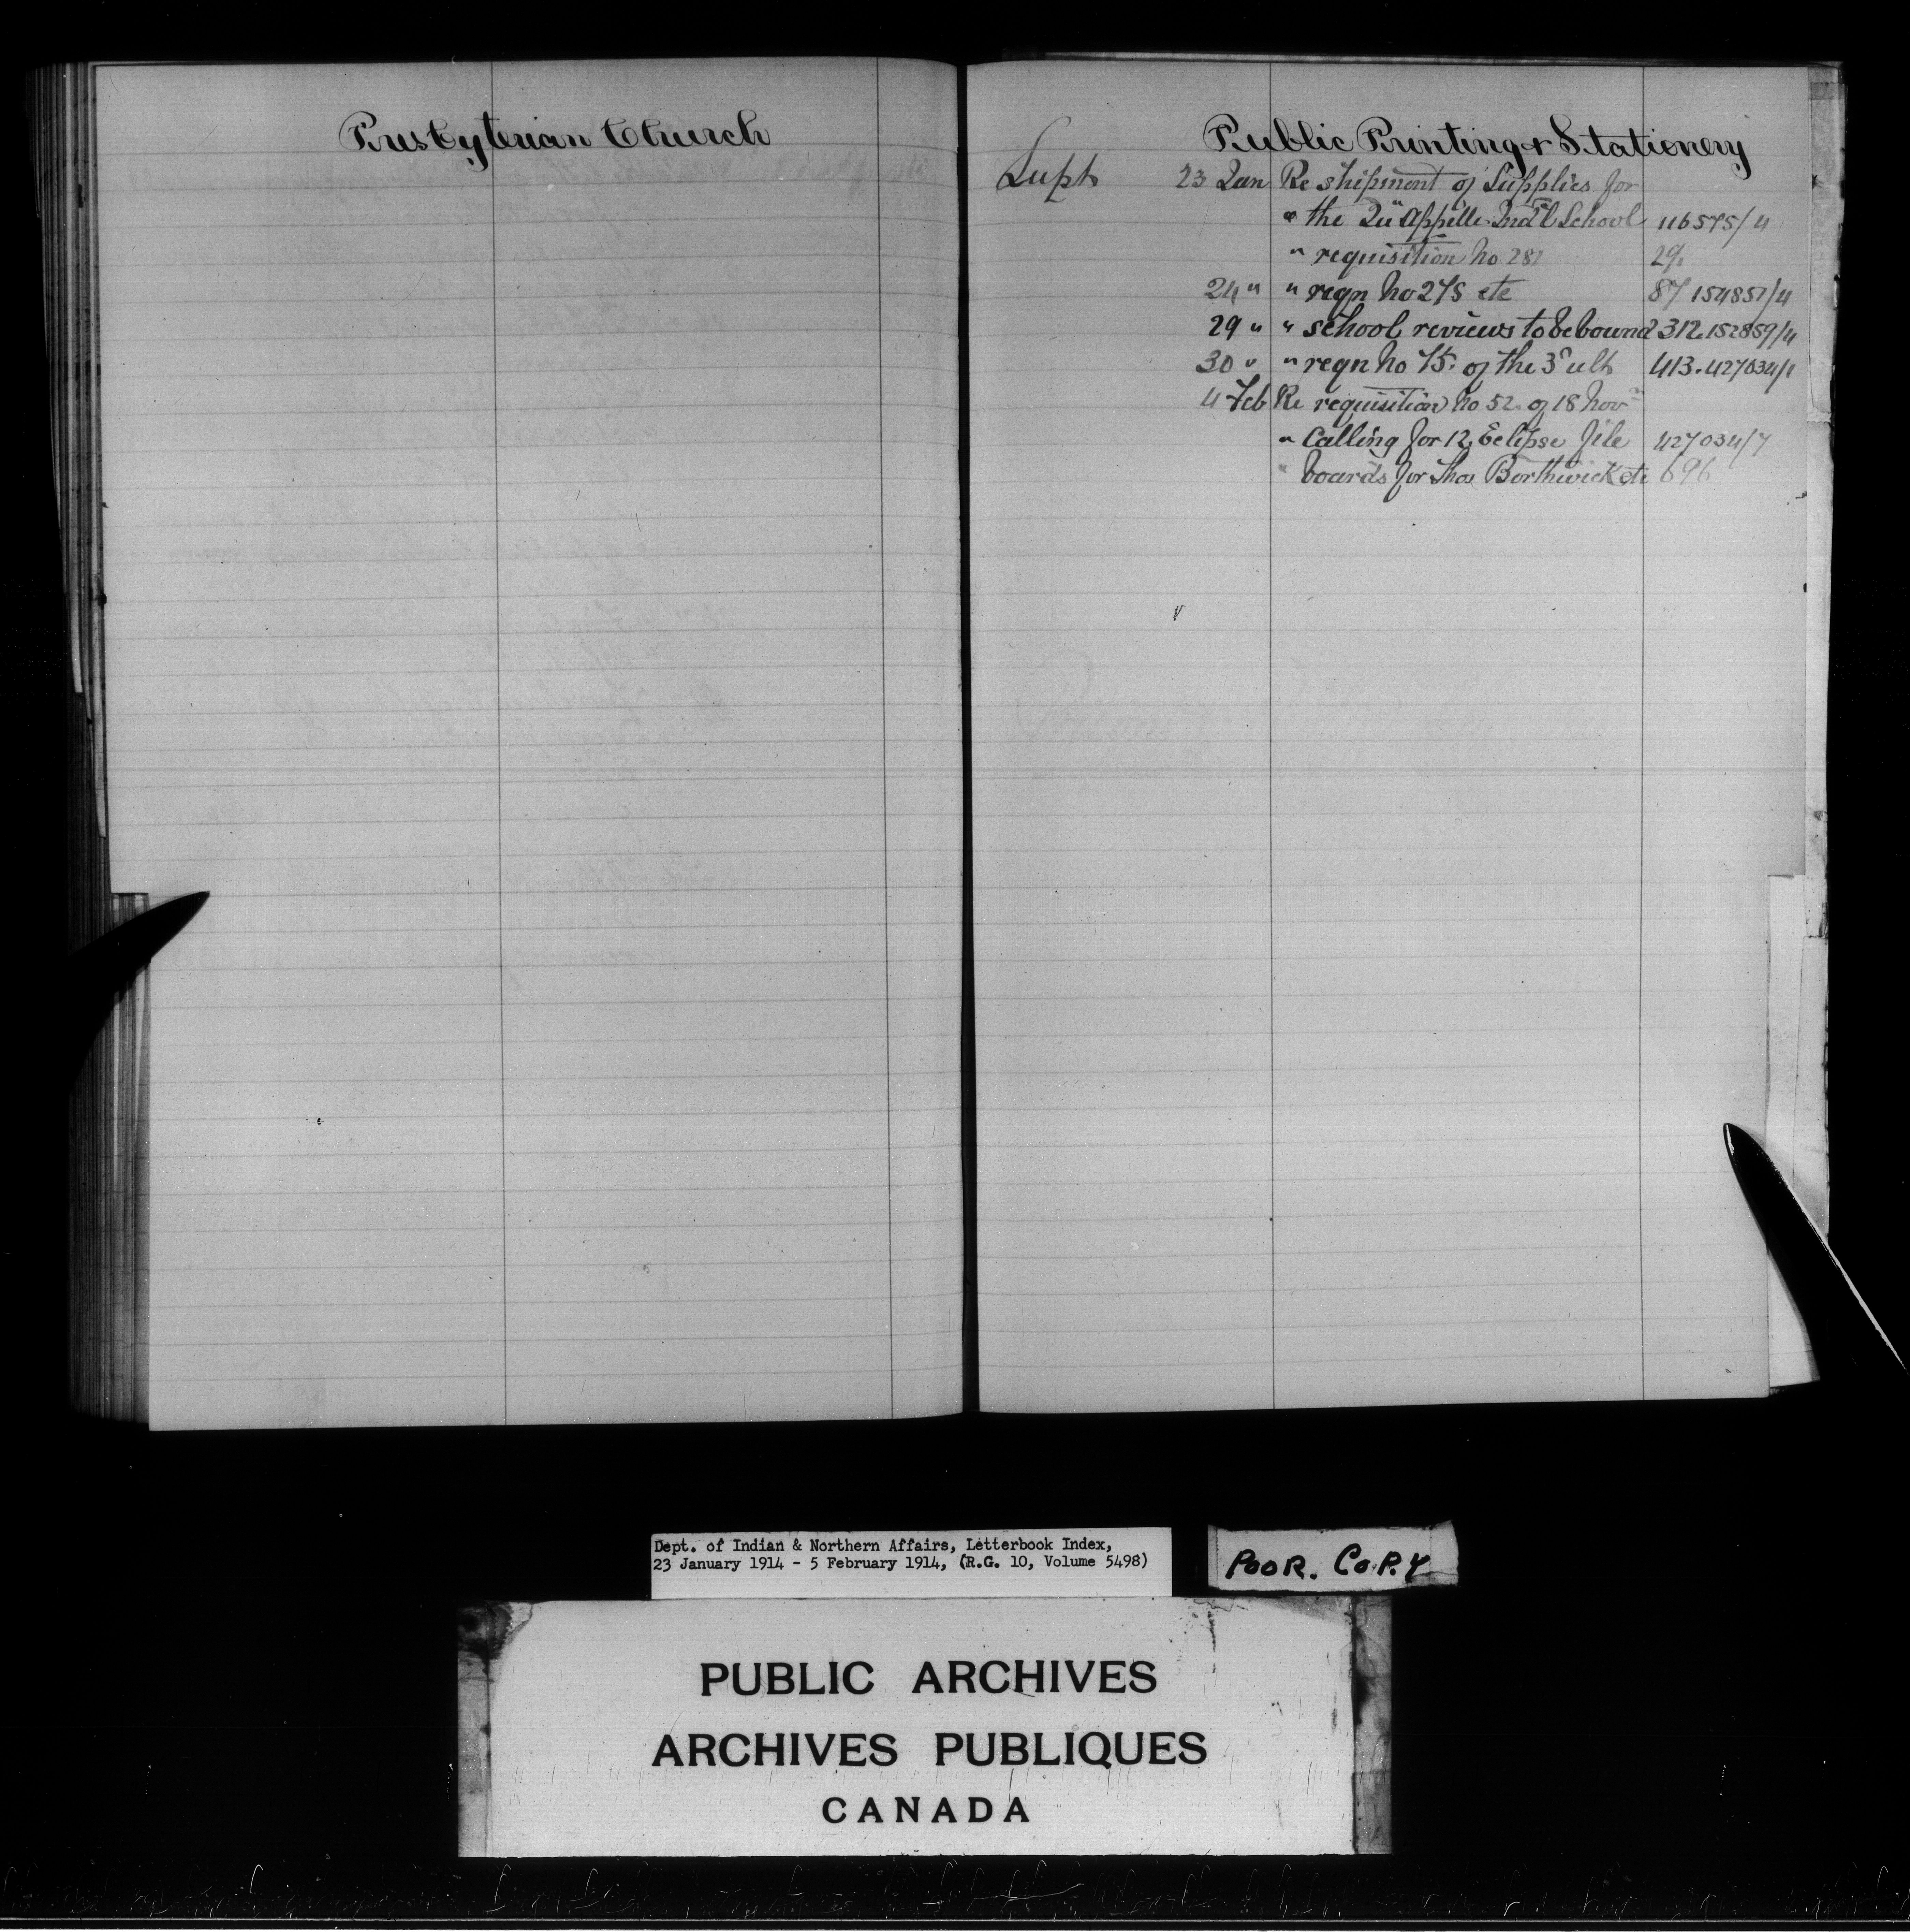 Presbyterian Church
Public Printing & Stationery
Supt 23 Jan Re shipment of Supplies for
" the Qu'Appelle Ind'l School 116575/4
" requisition No 281 29.
24 " " reqn No 275 etc 87 154857/4
29 " " school reviews to be bound 312.152859/4
30 " " reqn No 75. of the 3rd ult 413.427034/1
4 Feb Re requisition No 52 of 18 Nov
" Calling for 12 Eclipse file 427034/7
" boards for Thos Borthwick etc 696
Dept. of Indian & Northern Affairs, Letterbook Index,
23 January 1914 - 5 February 1914, (R.G. 10, Volume 5498)
POOR. COPY
PUBLIC ARCHIVES
ARCHIVES PUBLIQUES
CANADA